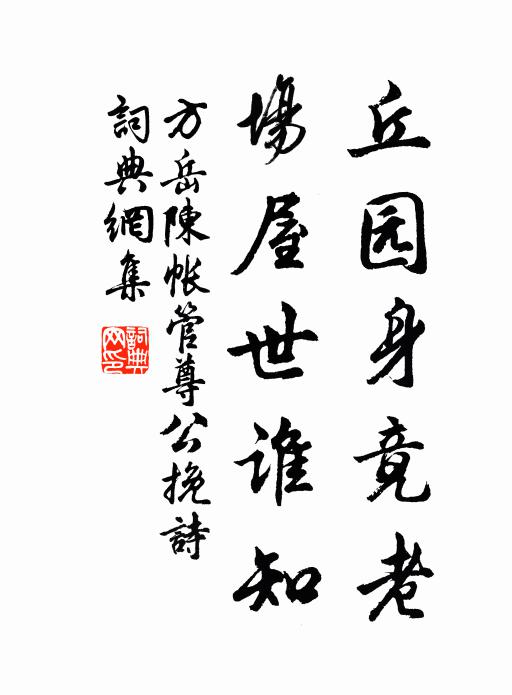 丘园身竟老
場屋世谁知
方岳陳帐管尊公挽詩
詞典網集
詞典网印